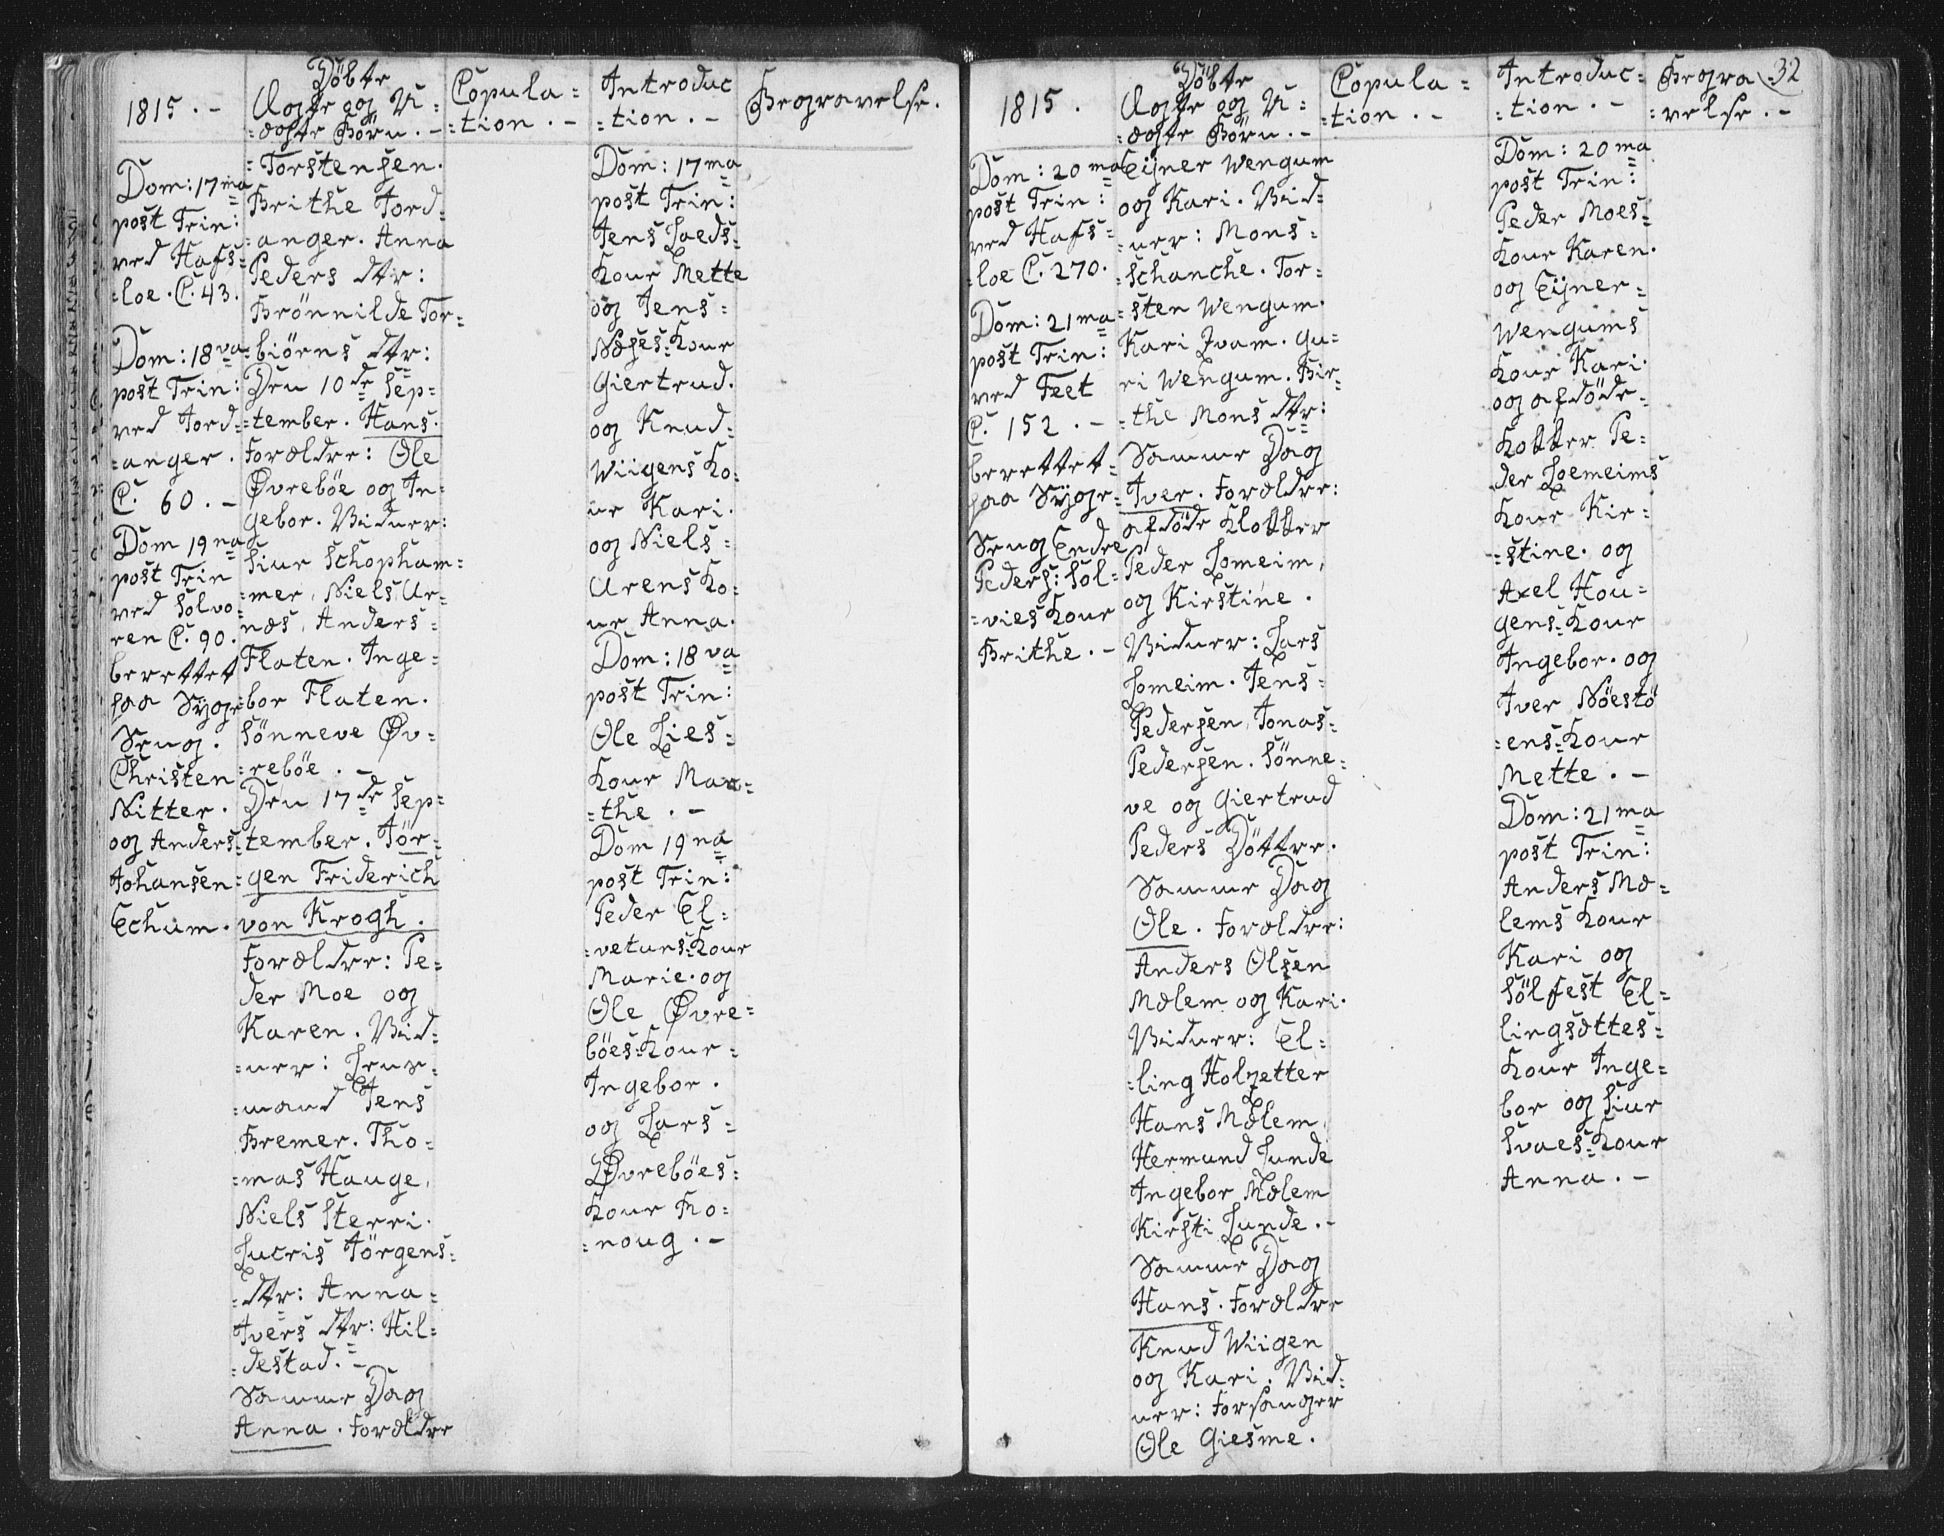 1815. -
Döbte
Ægte og U=
=ægte Börn. -
Copula=
=tion. -
Introduc
=tion. -
Begravelse.
Dom: 17ma
post Trin:
ved Hafs=
=loe. C. 43.
Dom: 18va
post Trin:
ved Jord=
=anger.
C. 60. -
Dom 19na
post Trin
ved Solvo=
ren C. 90.
berettet
paa Syge
Seng.
Christen
Nitter.
og Anders
Johansen
Echum.
=Torstensen.
Brithe Jord=
=anger. Anna
Peders dtr:
Brönnilde Tor=
=biörns dtr:
Den 10de Sep=
=tember. Hans.
Forældre: Ole
Øvreböe og In=
gebor. Vidner:
Siur Schopham=
=mer, Niels Ur=
næs, Anders=
Flaten. Inge=
=bor Flaten.
Sönneve Øv=
=reböe. -
Den 17de Sep=
=tember. Jör=
=gen Friderich
von Krogh.
Forældre: Pe=
der Moe og
Karen. Vid=
=ner: Lens=
=mand Jens
Bremer. Tho=
=mas Hauge,
Niels Sterri.
Lucris Jörgens=
=dtr: Anna=
Ivers dtr: Hil=
=destad. -
Samme Dag
Anna. Forældre
Dom: 17ma
post Trin:
Jens Loeds=
Kone Mette
og Jens=
Næses=Kone
Giertrud.
og Knud=
Wiigens Ko=
ne Kari.
og Niels=
Urens Ko=
ne Anna.
Dom: 18va
post Trin:
Ole Lies=
Kone Mar=
=the. -
Dom 19na
post Trin:
Peder El=
=vetuns=Kone
Marie. og
Ole Øvre=
böes=Kone=
Ingebor.
og Lars=
Øvreböes=
Kone Ro=
=noug. -
1815.
Döbte
Ægte og U=
=ægte Börn. -
Copula=
=tion. -
Introduc=
=tion. -
Begra
=velse. -
32
Dom: 20ma
post Trin:
ved Hafs=
=loe C. 270.
Dom: 21ma
post Trin:
ved Feet
C. 152. -
berettet=
paa Syge=
Seng Endre
Peders: Söl=
=vies Kone
Brithe. -
Eijner Wengum
og Kari. Vid=
=ner: Mons=
=Schanche. Tor=
=sten Wengum.
Kari Qvam. Gu=
ri Wengum. Bir=
=the Mons dtr:
Samme Dag
Iver. Forældre:
afdöde Klokker
Peder Lomeim,
og Kirstine.
Vidner: Lars
Lomeim. Jens=
Pedersen, Jonas=
Pedersen. Sönne=
ve og Giertrud
Peders Döttre.
Samme Dag
Ole. Forældre:
Anders Olsen
Mælem og Kari.
Vidner: El=
=ling Holzetter
Hans Mælem,
Hermund Lunde
Ingebor Mælem
Kirsti Lunde. -
Samme Dag
Hans. Forældre
Knud Wiigen
og Kari. Vid=
ner: Forsanger
Ole Giesme.
Dom: 20ma
post Trin:
Peder Moes=
Kone Karen.
og Eijner=
Wengums
Kone Kari.
og afdöde=
Kokker Pe=
der Loemeims
Kone Kir=
=stine. og
Axel Hou=
gens=Kone
Ingebor. og
Iver Nöestö
=ens=Kone
Mette. -
Dom: 21ma
post Trin:
Anders Mæ=
lems Kone
Kari og
Sölfest El=
lingsættes=
Kone Inge=
bor og Siur
Svaes=Kone
Anna. -